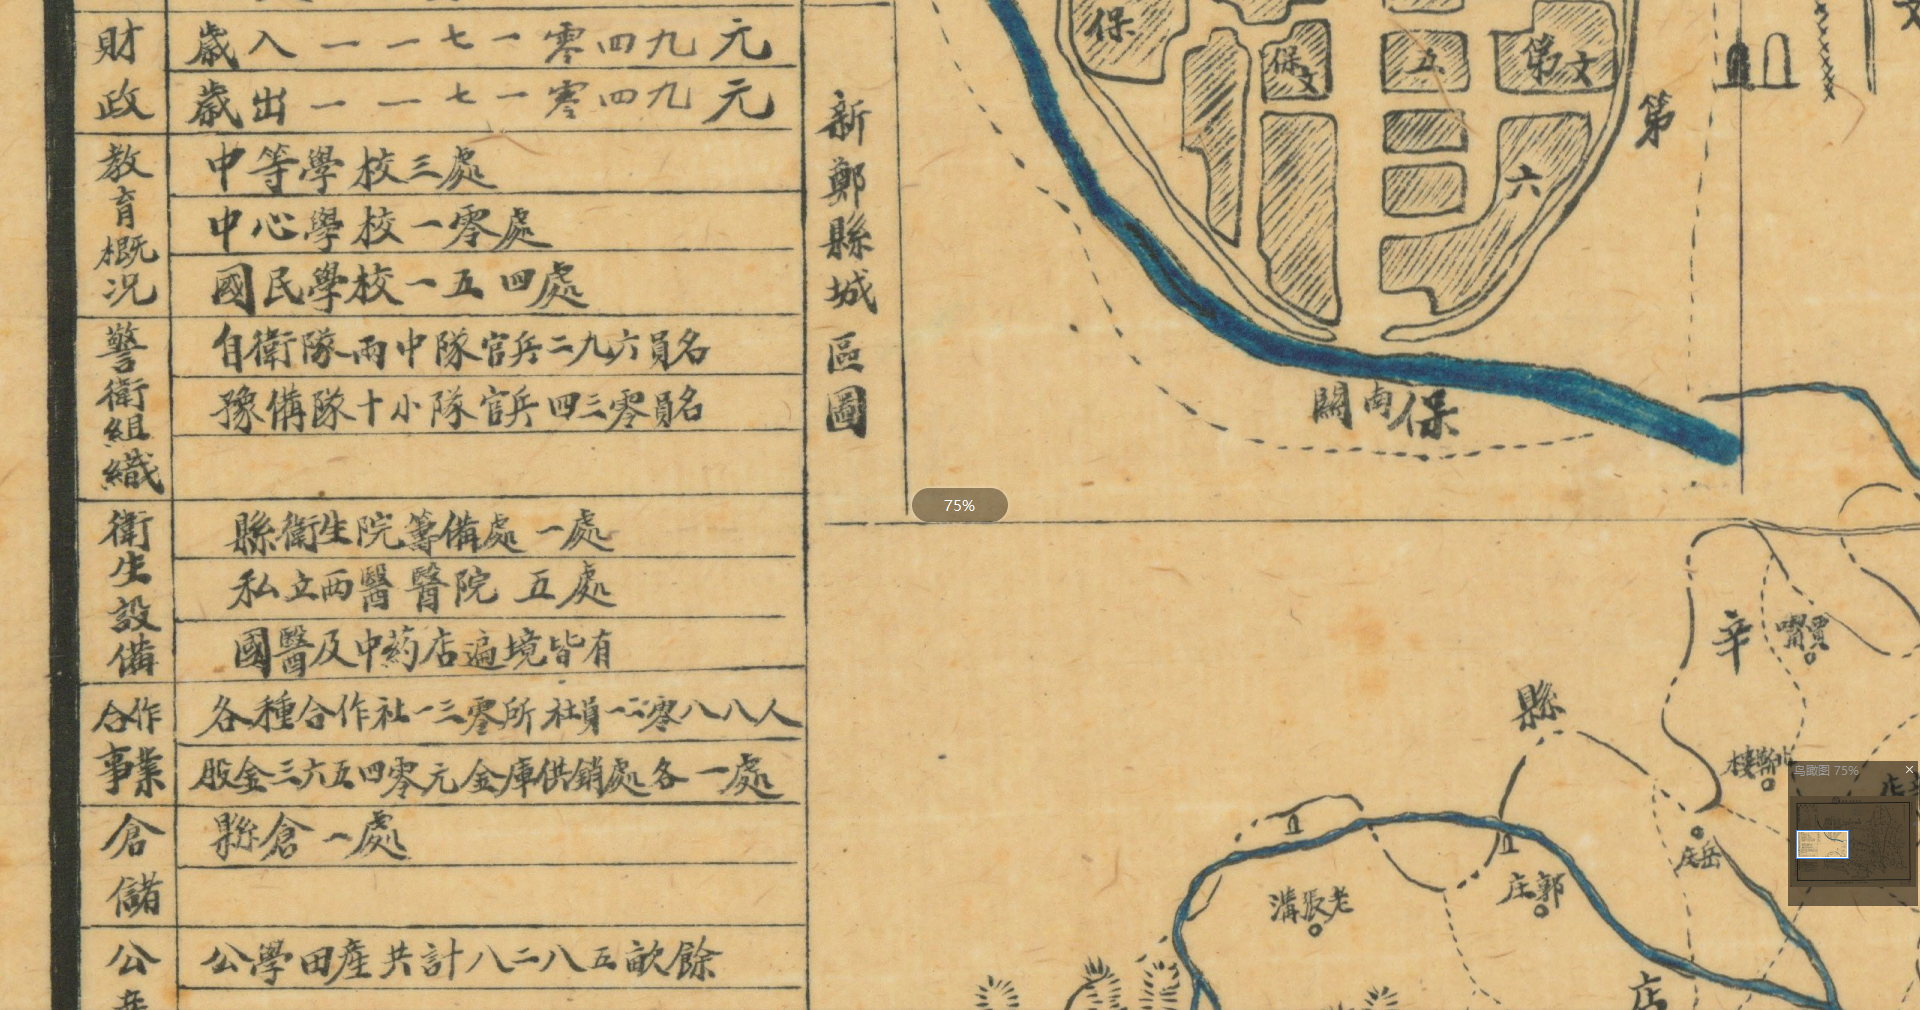 財政
歲入一一七一零四九元
歲出一一七一零四九元
教育概況
中等學校三處
中心學校一零處
國民學校一五四處
警衛組織
自衛隊兩中隊官兵二九六員名
豫備隊十小隊官兵四三零員名
衛生設備
縣衛生院籌備處一處
私立西醫醫院五處
國醫及中药店遍境皆有
合作事業
各種合作社一三零所社員一二零八八人
股金三六五四零元金庫供銷處各一處
倉儲
縣倉一處
公
公學田產共計八二八五畝餘
新鄭縣城區圖
保
保
文
五
第
文
六
第
關南
保
75%
辛
縣
岳庄
郭庄
老張溝
店
鸟瞰图 75%